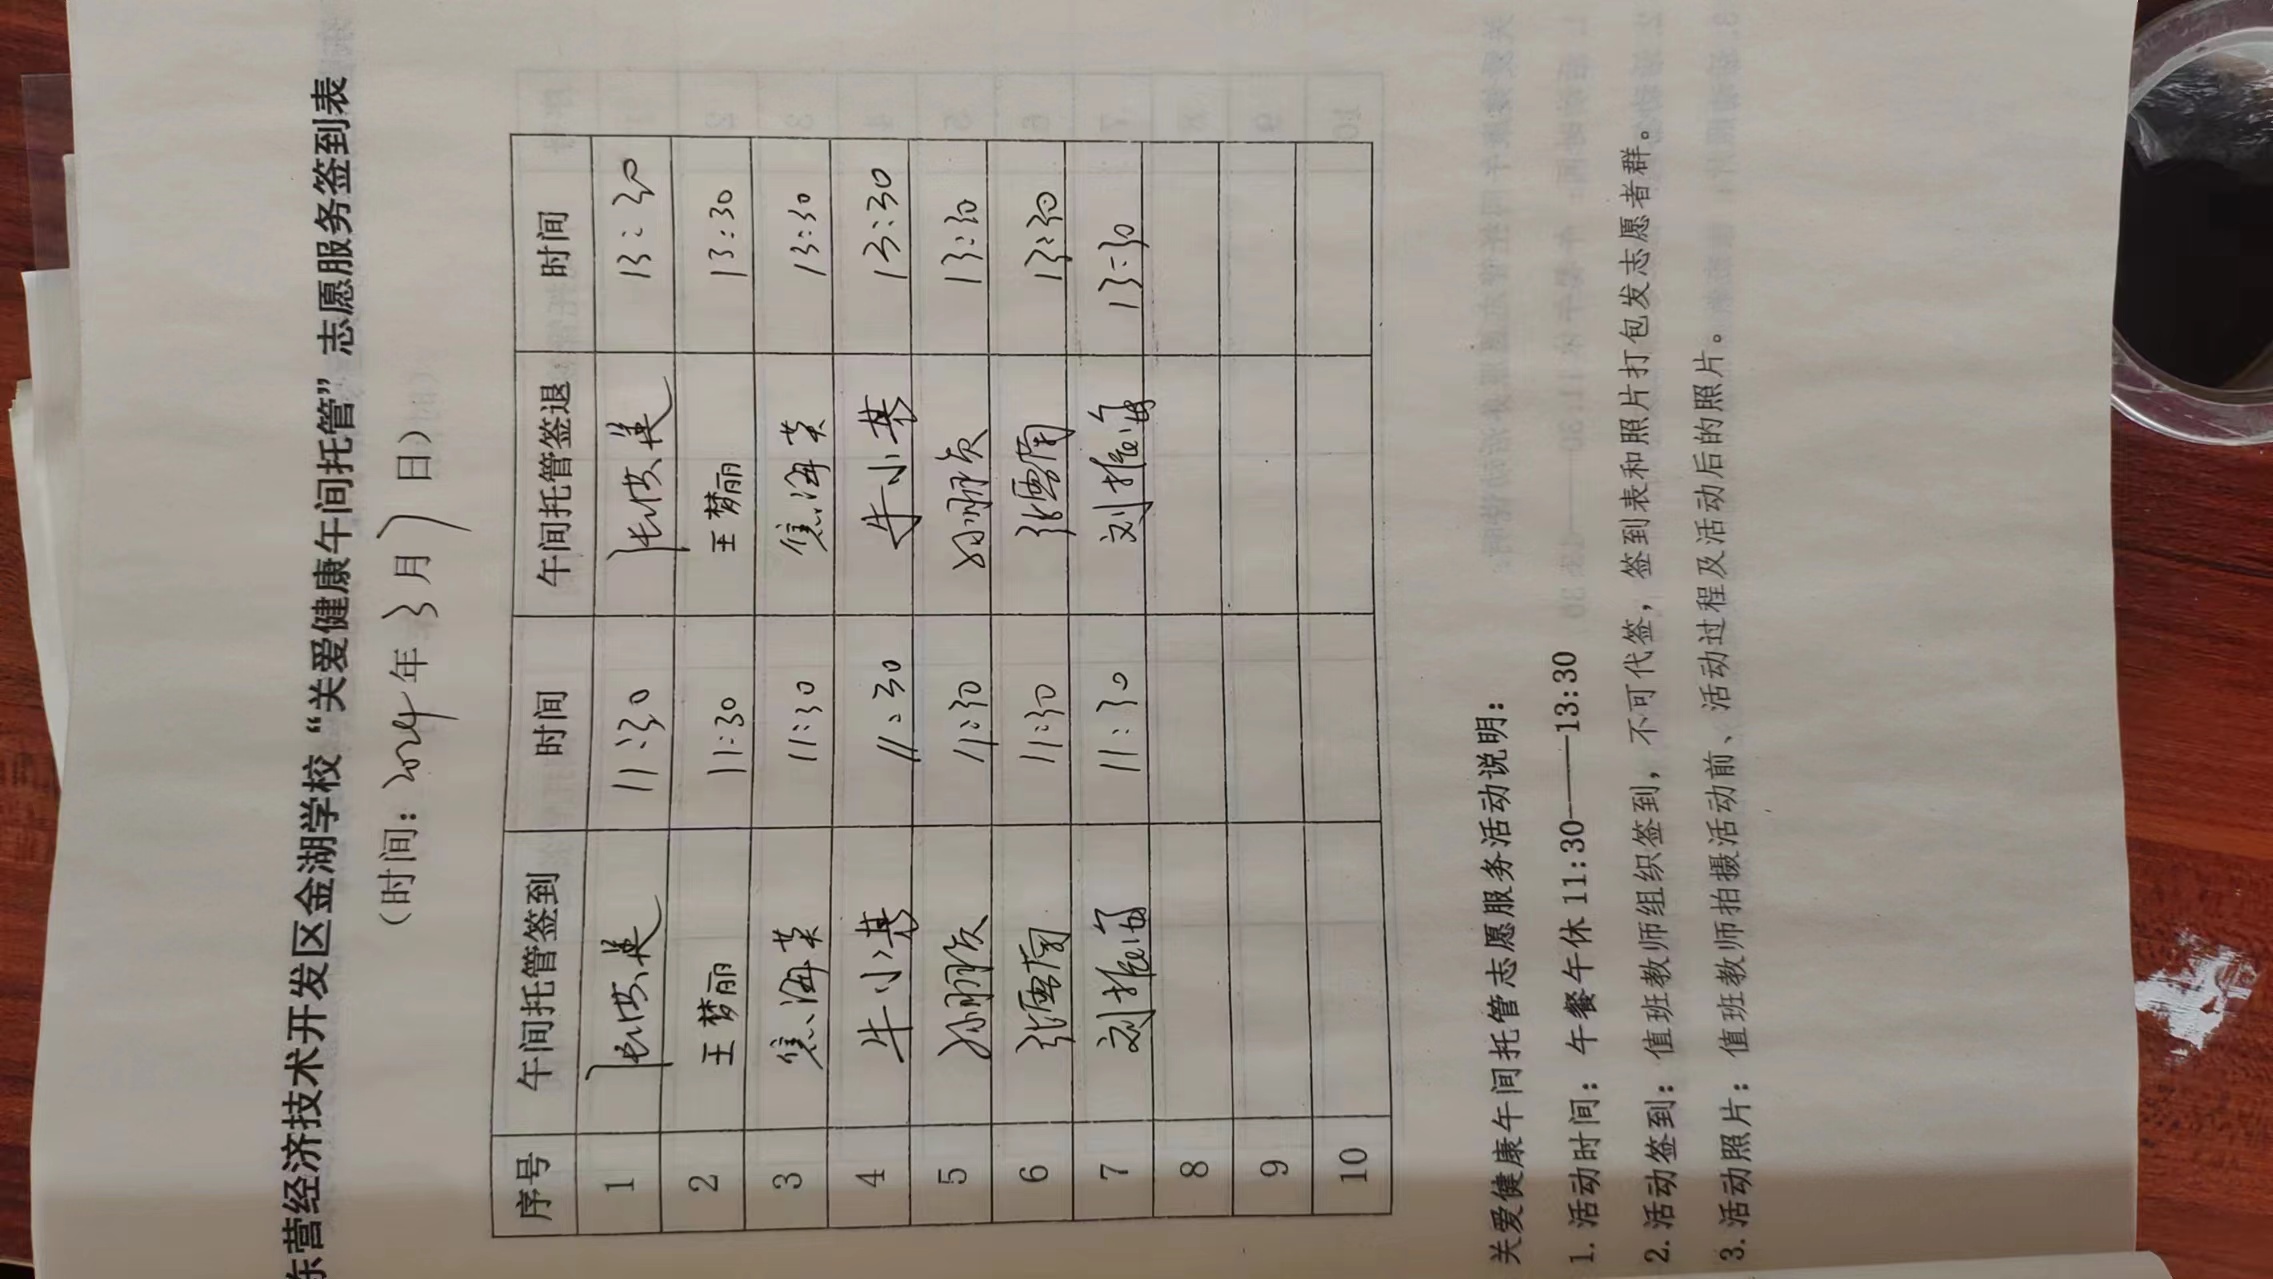 东营经济技术开发区金湖学校“关爱健康午间托管”志愿服务签到表
（时间：2024年3月7日）
序号 午间托管签到 时间 午间托管签退 时间
1 张洪英 11:30 张洪英 13:30
2 王梦丽 11:30 王梦丽 13:30
3 焦海英 11:30 焦海英 13:30
4 牛小基 11:30 牛小基 13:30
5 11:30 13:30
6 张雪南 11:30 张雪南 13:30
7 刘振海 11:30 刘振海 13:30
8
9
10
关爱健康午间托管志愿服务活动说明：
1.活动时间：午餐午休11:30——13:30
2.活动签到：值班教师组织签到，不可代签，签到表和照片打包发志愿者群。
3.活动照片：值班教师拍摄活动前、活动过程及活动后的照片。